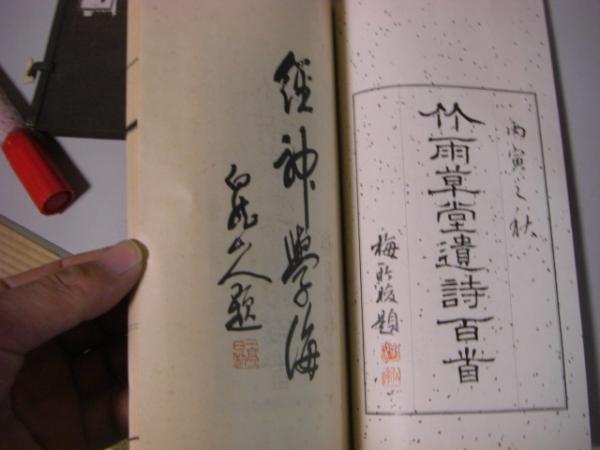 丙寅之秋
竹雨草堂遺詩百首
梅題
經神學海
白山人題